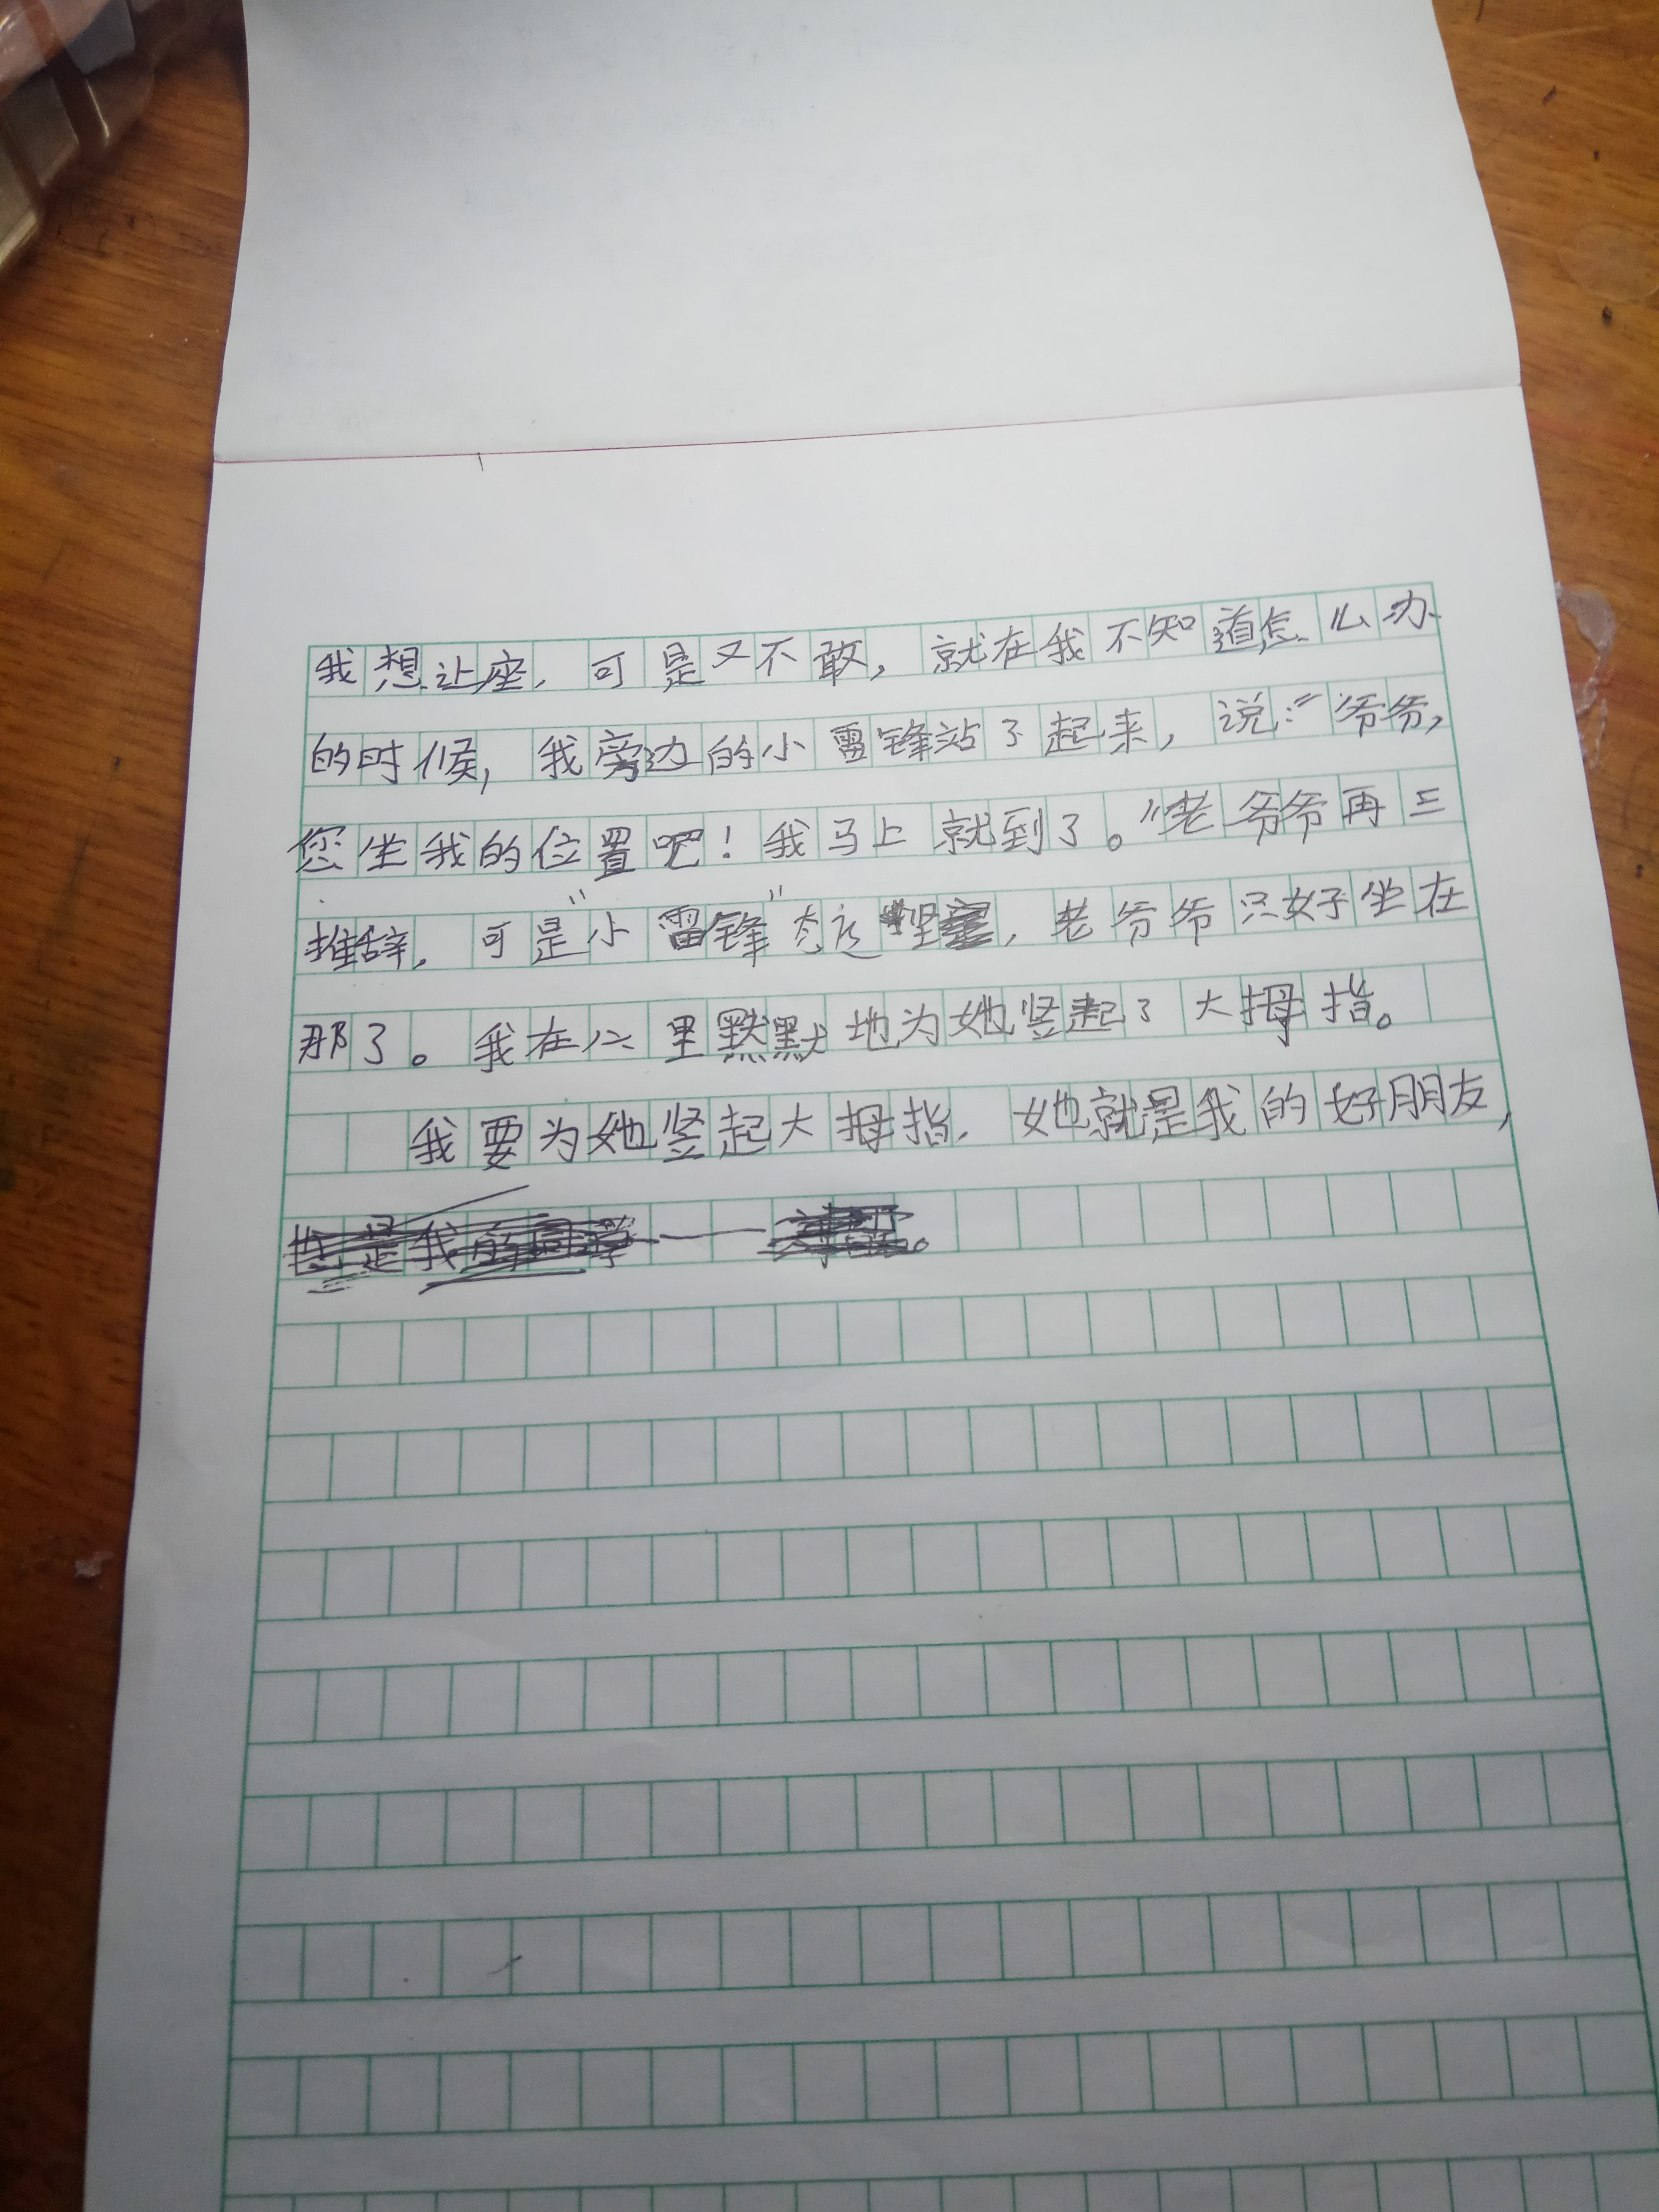 我想让座，可是又不敢，就在我不知道怎么办
的时候，我旁边的小雷锋站了起来，说：“爷爷，
您坐我的位置吧！我马上就到了。”老爷爷再三
推辞，可是“小雷锋”态度坚定，老爷爷只好坐在
那了。我在心里默默地为她竖起了大拇指。
我要为她竖起大拇指，她就是我的好朋友，